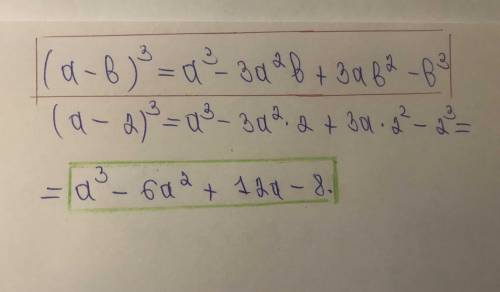 (a-b)³ = a³ - 3a²b + 3ab² - b³
(a-2)³ = a³ - 3a²·2 + 3a·2² - 2³ =
= a³ - 6a² + 12a - 8.